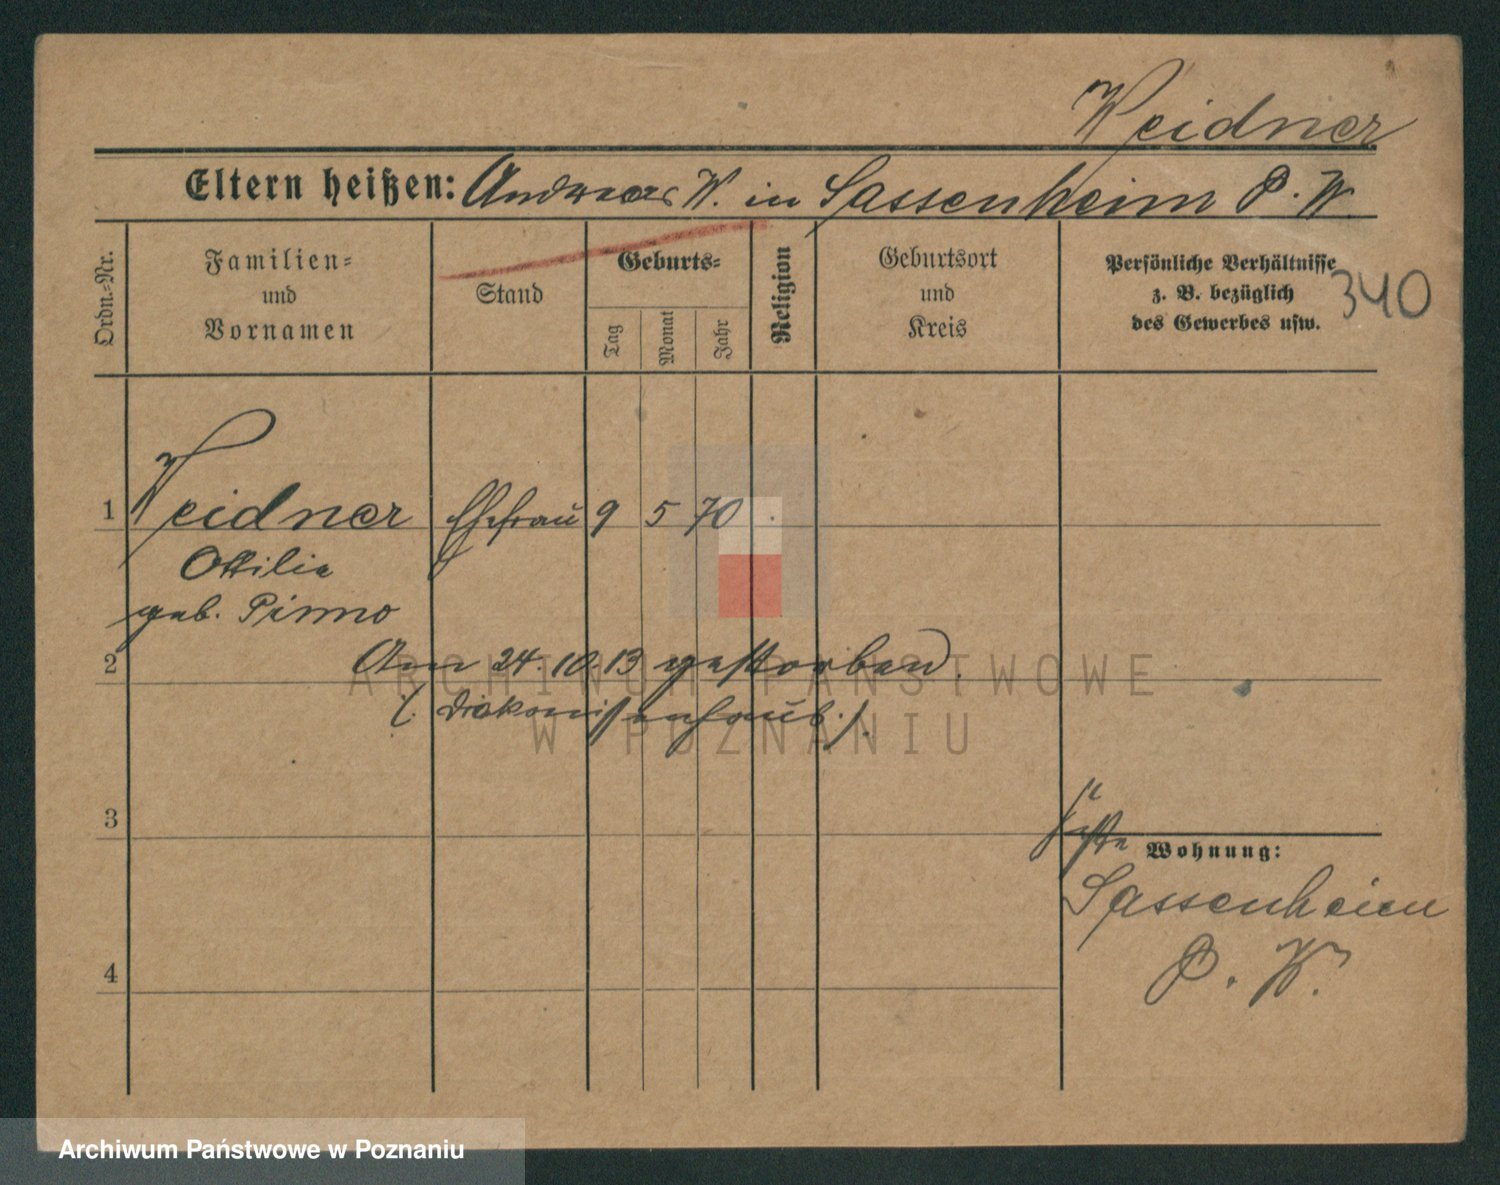 Weidner
Eltern heißen: Andreas W. in Sassenheim P. W.
Ordn.-Nr.
Familien-
und
Vornamen
Stand
Geburts-
Tag
Monat
Jahr
Religion
Geburtsort
und
Kreis
Persönliche Verhältnisse
z. B. bezüglich
des Gewerbes usw.
340
1 Weidner Ehefrau 9 5 70
Ottilie
geb. Pinno
2 Am 24.10.13 gestorben.
(Diakonissenhaus).
3
Wohnung:
Sassenheim
P. W.
4
ARCHIWUM PAŃSTWOWE
W POZNANIU
Archiwum Państwowe w Poznaniu